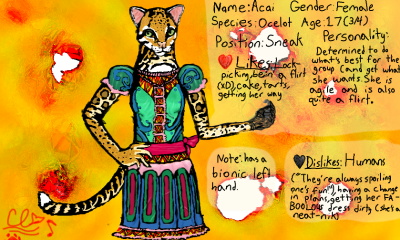 Name: Acai Gender: Female
Species: Ocelot Age: 17 (3/4)
Position: Sneak
Personality:
Determined to do
what's best for the
group (and get what
she wants. She is
agile and is also
quite a flirt.
Likes: Lock-
picking, bein' a flirt
(xD), cake, tarts,
getting her way
Note: has a
bionic left
hand.
Dislikes: Humans
("They're always spoiling
one's fun"), having a change
in plans, getting her FA-
BOOLOUS dress dirty (she's a
neat-nik)